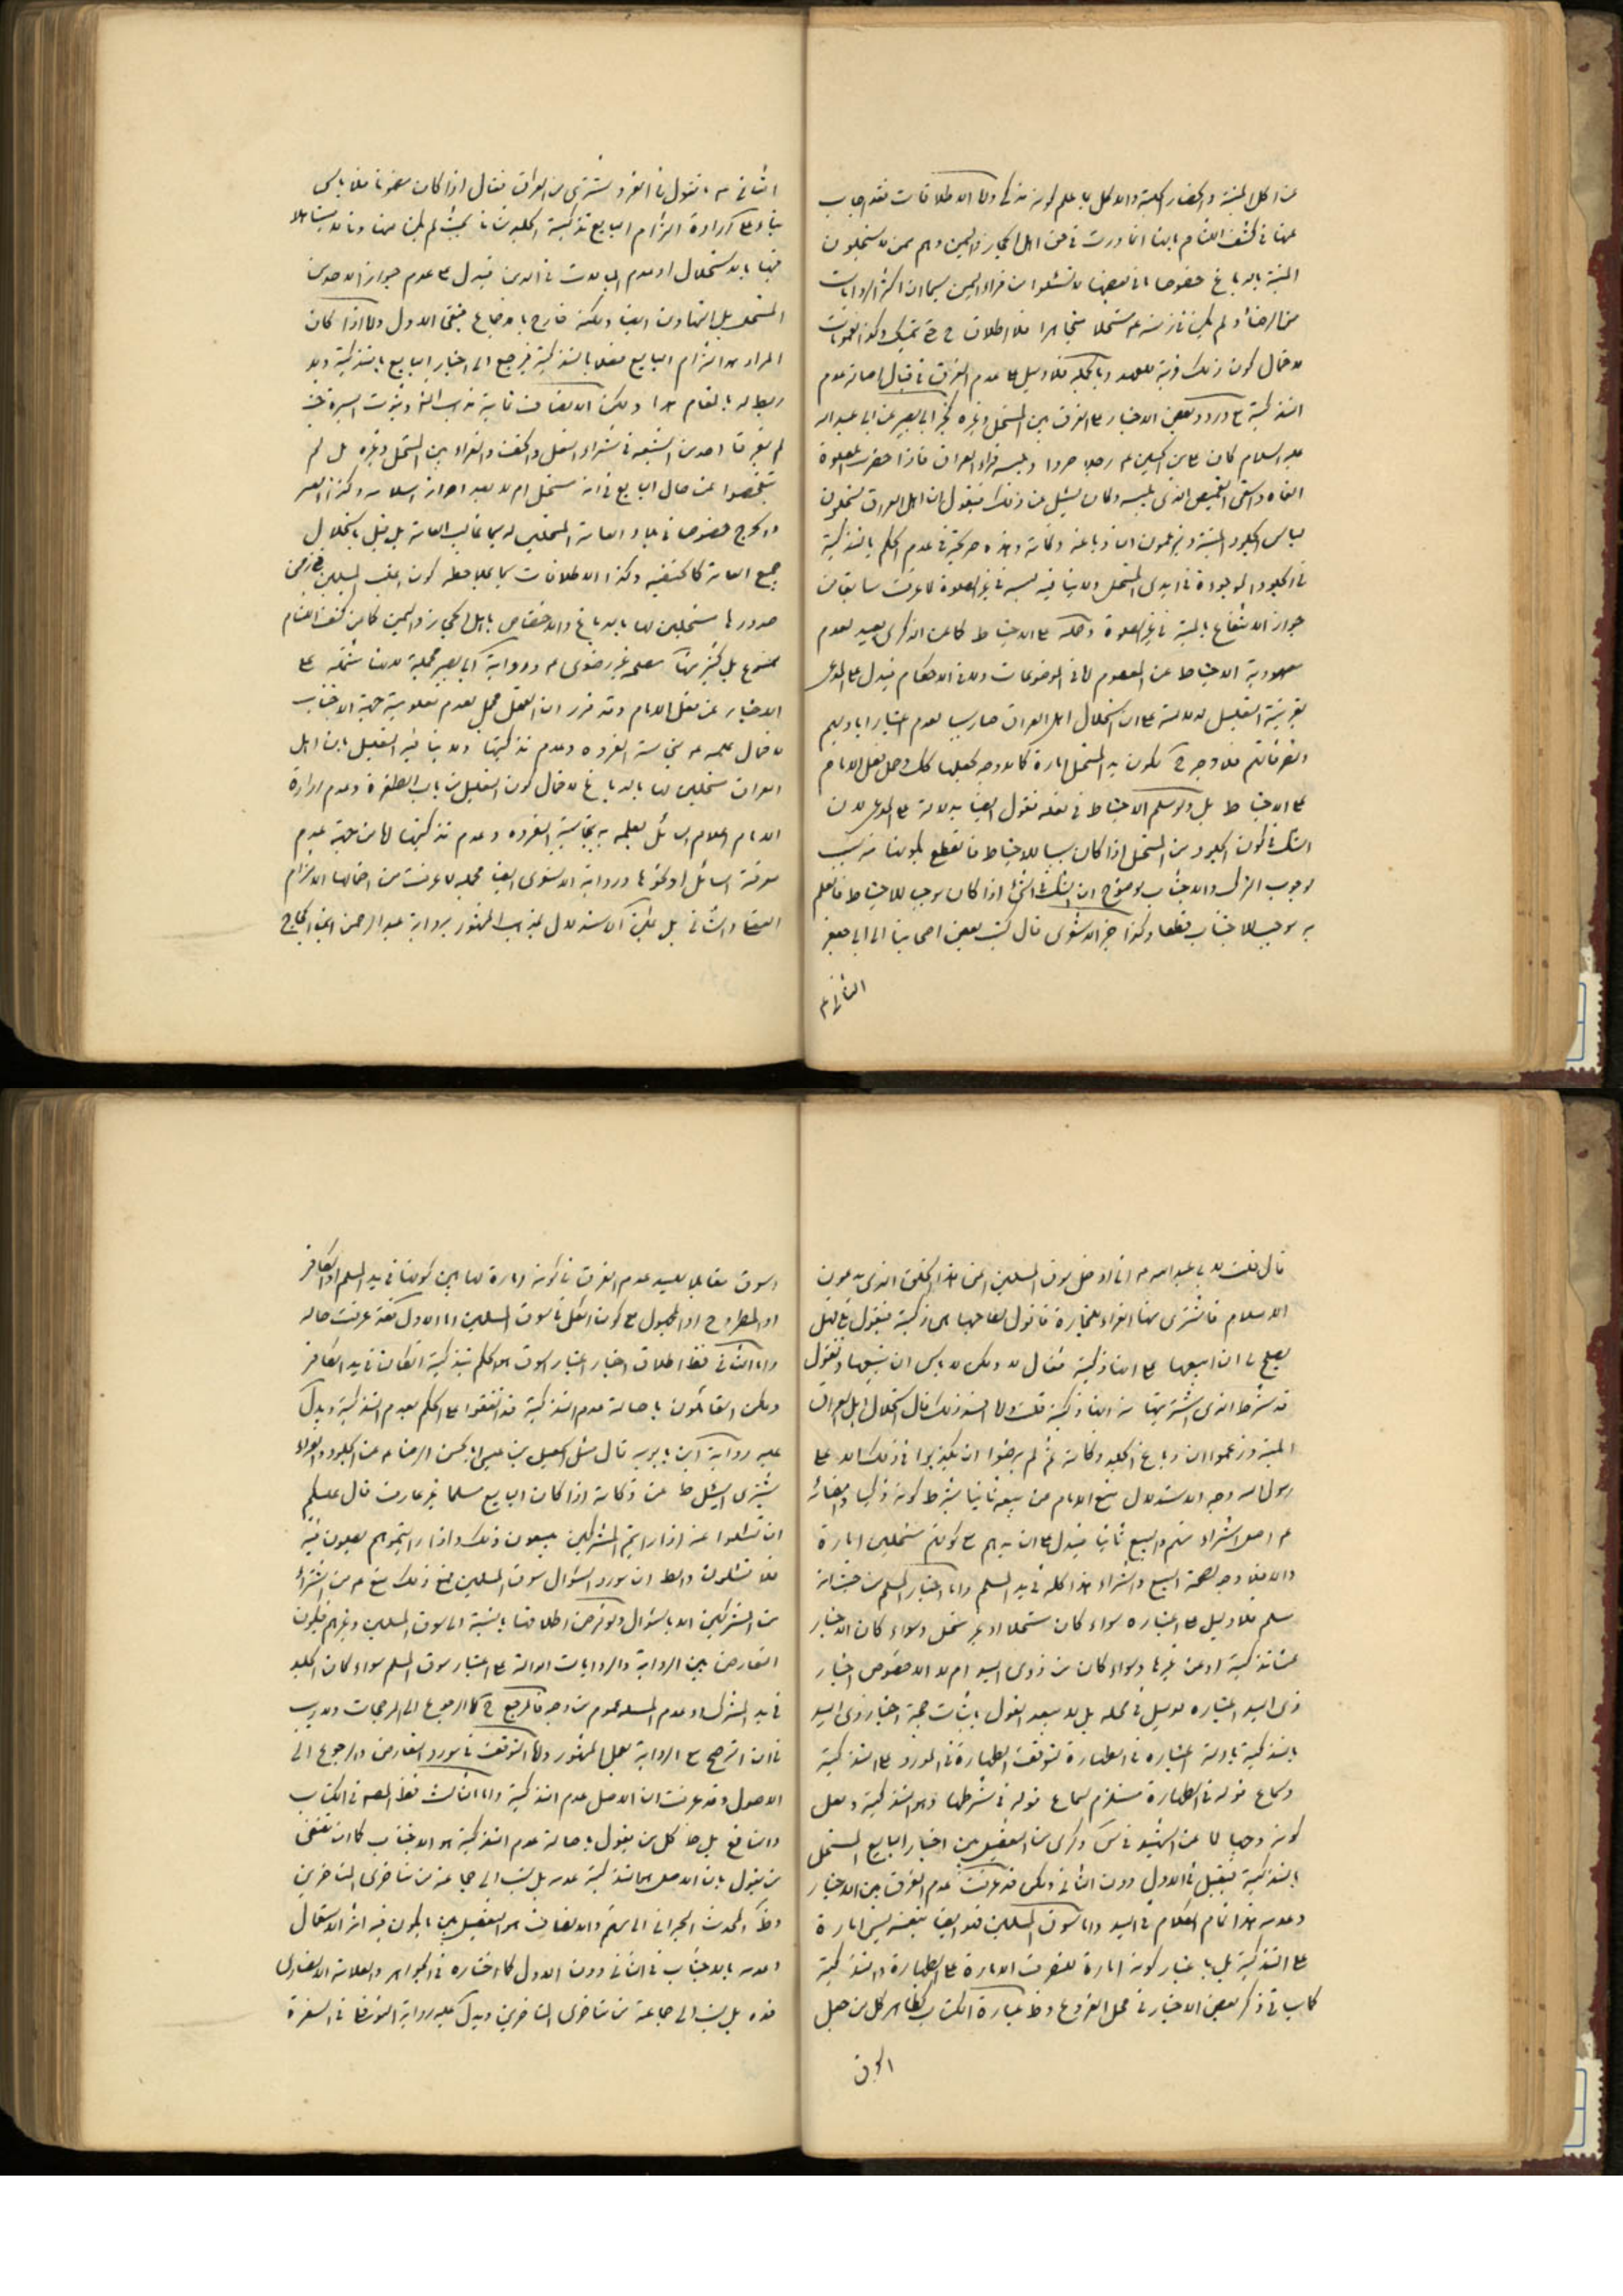 عن اكل الميتة واحضار الكلية والاكل ما علم كونه مذكى ولا الاطلاقات فقد اجاب
عنها في كشف اللثام بانها انما وردت في حق اهل الحجاز واليمن وهم ممن لا يستحلون
الميتة بالدباغ خصوصا ان بعضها لا تسئلوا من فراء اليمن سيما ان اكثر الروايات
من الرضا ولم يكن في زمنه مستحلا متجاهرا فلا اطلاق ح حتى يتمسك
لاحتمال كون ذلك قرينة للعهد وبالجملة فلا دليل على عدم الفرق في قبال اصالة عدم
التذكية مع ورود بعض الاخبار على الفرق بين المستحل وغيره كخبر ابي بصير عن ابي عبد الله
عليه السلام كان علي بن الحسين رجلا صردا وليسه فراء العراق فاذا حضرت الصلوة
القاه والقى القميص الذي يليه وكان يسئل عن ذلك فيقول ان اهل العراق يستحلون
لباس الجلود الميتة ويزعمون ان دباغه ذكاته وهذه صريحة في عدم الحكم بالتذكية
في الجلود الموجودة في ايدي المستحل ولا ينافيه لبسه في غير الصلوة لما عرفت سابقا من
جواز الانتفاع بالميتة في غير الصلوة وحمله على الاحتياط كما عن الذكرى بعيد لعدم
معهودية الاحتياط عن المعصوم لا في الموضوعات ولا في الاحكام فيدل على المدعى
بقرينة التعليل لدلالته على ان استحلال اهل العراق صار سببا لعدم اعتبار اياديهم
وتصرفاتهم فلا وجه ح لكون يد المستحل امارة كما لا وجه لجعلها كك وحمل فعل الامام
على الاحتياط بل ولو سلم الاحتياط في فعله نقول ايضا يدلالة على المدعى لان
الشك في كون الجلود من المستحل اذا كان سببا للاحتياط فالقطع بكونها منه سبب
لوجوب الترك والاجتناب لوضوح ان الشك في الشئ اذا كان موجبا للاحتياط فالعلم
به موجب للاجتناب قطعا وكذا خبر الاشعري قال كتب بعض اصحابنا الى ابي جعفر
الثاني ع
الثاني ع ما تقول في الفرو يشترى من العراق فقال اذا كان مضمونا فلا باس
بناء على ارادة التزام البايع تذكية الجلد
فيها بالاستحلال او عدم المبالات في الدين فيدل على عدم جواز الاخذ من
المستحل بل المتهاون ايضا ولكنه خارج بالاجماع فبقى الاول ولا اذا كان
المراد هو التزام البايع فعلا بالتذكية فيرجع الى اخبار البايع بالتذكية ولا
ربط له بالمقام هذا ولكن الانصاف
لم يفرق احد من الشيعة في شراء النعل والخف والفراء بين المستحل وغيره بل لم
يتفحصوا عن حال البايع في انه مستحل ام لا بعد احراز اسلامه وكذا العسر
والحرج خصوصا في بلاد العامة المستحلين له سيما غالب العامة بل قيل باستحلال
جميع العامة كالحنفية وكذا الاطلاقات سيما بملاحظة كون اغلب المسلمين في زمن
صدورها مستحلين لها بالدباغ والاختصاص باهل الحجاز واليمن كما عن كشف اللثام
ممنوع بل كثير منها مطلقة غير رضوي ورواية ابي بصير مجملة لانها مشتملة على
الاخبار عن فعل الامام وقد قرر ان الفعل مجمل لعدم معلومية جهة الاجتناب
لاحتمال علمه ع بنجاسة الفروة وعدم تذكيتها ولا ينافيه التعليل بان اهل
العراق مستحلين لها بالدباغ لاحتمال كون التعليل من باب الطفرة وعدم ارادة
الامام اعلام السائل بعلمه بنجاسة الفروة وعدم تذكيتها لا من جهة عدم
معرفة السائل او نحوها ورواية الاشعري ايضا مجملة لما عرفت من احتمالها الالتزام
الفعلي والشاني بل يمكن الاستدلال لمذهب المشهور برواية عبد الرحمن ابن الحجاج
قال قلت لابي عبد الله ع اني ادخل سوق المسلمين اعني هذا الخلق الذي يدعون
الاسلام فاشترى منها الفراء للتجارة فاقول لصاحبها اليس هي ذكية فيقول بلى فهل
يصلح لي ان ابيعها على انها ذكية فقال لا ولكن لا باس ان تبيعها وتقول
قد شرط الذي اشتريتها منه انها ذكية قلت وما افسد ذلك قال استحلال اهل العراق
الميتة وزعموا ان دباغ الجلد ذكاته ثم لم يرضوا ان يكذبوا في ذلك الا على
رسول الله وجه الاستدلال منع الامام من بيعه ثانيا بشرط كونه ذكيا وامضائه
ع اصل اشتراء منهم والبيع ثانيا فيدل على ان يدهم مع كونهم مستحلين امارة
والا فلا وجه لصحة البيع والشراء هذا كله في يد المسلم واما اخبار المسلم من حيث انه
مسلم فلا دليل على اعتباره سواء كان مستحلا او غير مستحل وسواء كان الاخبار
عن التذكية او عن غيرها وسواء كان من ذوي اليد ام لا الا خصوص اخبار
ذي اليد اعتباره لدليل في محله بل لا يبعد القول باثبات حجية اخبار ذي اليد
بالتذكية بادلة اعتباره في الطهارة لتوقف الطهارة في المورد على التذكية
وسماع قوله في الطهارة مستلزم لسماع قوله في شرطها وهو التذكية ولعل
كونه وجها لما عن الشهيد في س وكرى من التفصيل بين اخبار البايع المستحل
بالتذكية فيقبل في الاول دون الثاني ولكن قد عرفت عدم الفرق بين الاخبار
وعدمه هذا تمام الكلام في اليد واما سوق المسلمين فهو ايضا بنفسه ليس امارة
على التذكية بل باعتبار كونه امارة لتصرف الامارة على الطهارة والتذكية
كما سياتي ذكر بعض الاخبار في محل الفروع وظ عبارة الكتاب كظاهر كل من جعل
السوق
السوق مقابلا لليد عدم الفرق في كونه امارة لها بين كونها في يد المسلم او الكافر
او المطروح او المجهول مع كون الكل في سوق المسلمين اما الاول فقد عرفت حاله
واما الثاني فظ اطلاق اخبار اعتبار السوق هو الحكم بتذكية ما كان في يد الكافر
ولكن القائلون باصالة عدم التذكية قد اتفقوا على الحكم بعدم التذكية ويدل
عليه رواية ابن بابويه قال سئل اسمعيل بن عيسى ابا الحسن الرضا ع عن الجلود والفراء
يشترى ايسئل عن ذكاته اذا كان البايع مسلما غير عارف قال عليكم
ان تسئلوا عنه اذا رايتم المشركين يبيعون ذلك واذا رايتموهم يصلون فيه
فلا تسئلوا والظ ان مورد السؤال سوق المسلمين فمع ذلك منع ع من الشراء
من المشركين الا بالسؤال ولو فرض اطلاقها بالنسبة الى سوق المسلمين وغيرهم فيكون
التعارض بين الرواية والروايات الدالة على اعتبار سوق المسلم سواء كان الجلد
في يد المشرك او عدمه المسلم عموم من وجه فالمرجع ح اما الرجوع الى المرجحات ولا ريب
في ان الترجيح مع الرواية بعمل المشهور واما التوقف في مورد التعارض والرجوع الى
الاصول وقد عرفت ان الاصل عدم التذكية واما الثالث فظ المصه في الكتاب
والنافع بل ظ كل من يقول باصالة عدم التذكية هو الاجتناب كما ان مقتضى
من يقول بان الاصل هو التذكية عدمه بل نسب الى جماعة من متاخري المتاخرين
وظ المحدث البحراني الى منهم والانصاف هو التفصيل بين ما يكون فيه اثر الاستعمال
وعدمه بالاجتناب في الثاني دون الاول كما اختاره في الجواهر والعلامة الانصاري
قده بل نسب الى جماعة من متاخرى المتاخرين ويدل عليه رواية السكوني في السفرة